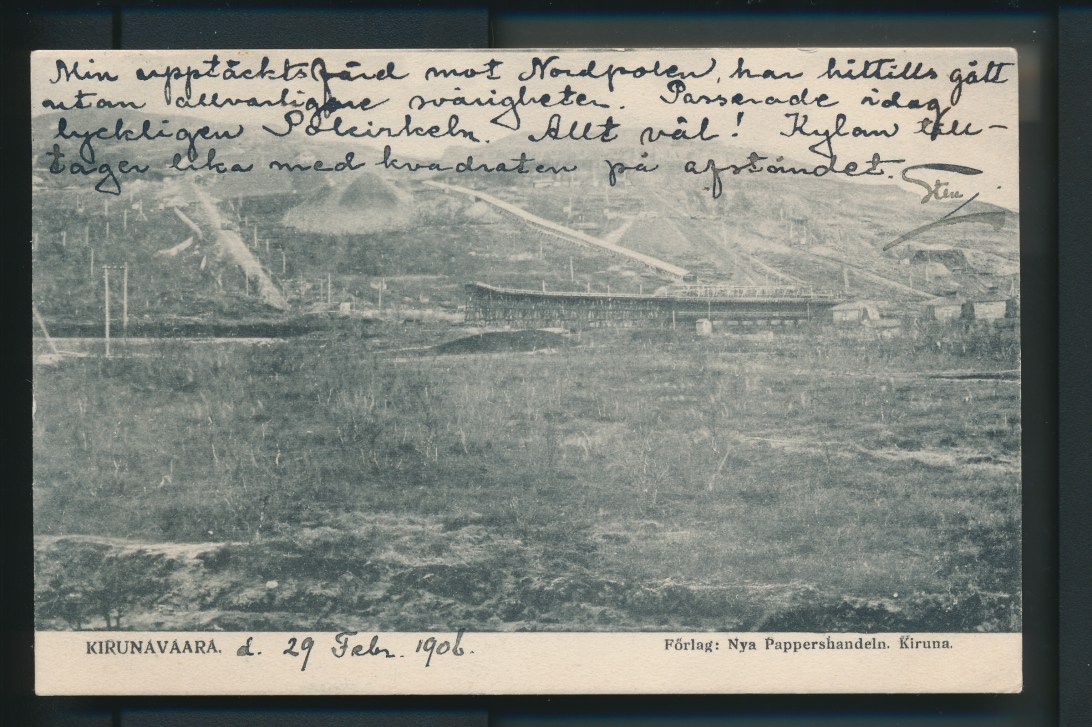 Min upptäcktsfärd mot Nordpolen, har hittills gått
utan allvarligare svårigheter. Passerade idag
lyckligen Polcirkeln. Allt väl! Kylan till-
tager lika med kvadraten på afståndet.
Sten
KIRUNAVAARA. d. 29 Febr. 1906.
Förlag: Nya Pappershandeln. Kiruna.